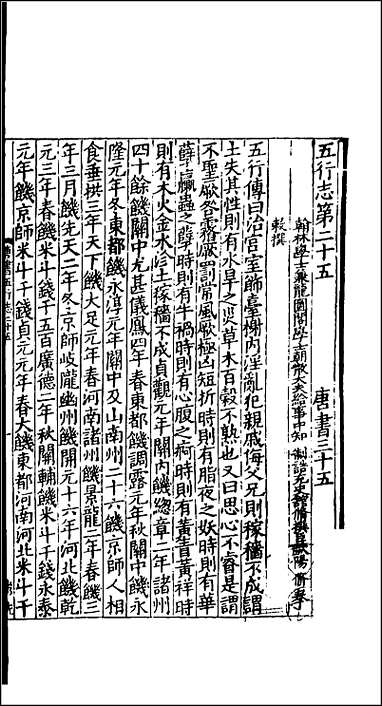 五行志第二十五　　唐書三十五
翰林學士兼龍圖閣學士朝散大夫給事中知制誥充史館脩撰臣歐陽脩奉
敕撰
五行傳曰治宫室飾臺榭内淫亂犯親戚侮父兄則稼穡不成謂
土失其性則有水旱之災草木百穀不熟也又曰思心不睿是謂
不聖厥咎霿厥罰常風厥極凶短折時則有脂夜之妖時則有華
孽蠃蟲之孽時則有牛禍時則有心腹之痾時則有黄眚黄祥時
則有木火金水沴土稼穡不成貞觀元年關内饑總章二年諸州
四十餘饑關中尤甚儀鳳四年春東都饑調露元年秋關中饑永
隆元年冬東都饑永淳元年關中及山南州二十六饑京師人相
食垂拱三年天下饑大足元年春河南諸州饑景龍二年春饑三
年三月饑先天二年冬京師岐隴幽州饑開元十六年河北饑乾
元三年春饑米斗錢千五百廣德二年秋關輔饑米斗千錢永泰
元年饑京師米斗千錢貞元元年春大饑東都河南河北米斗千
唐書五行志二十五